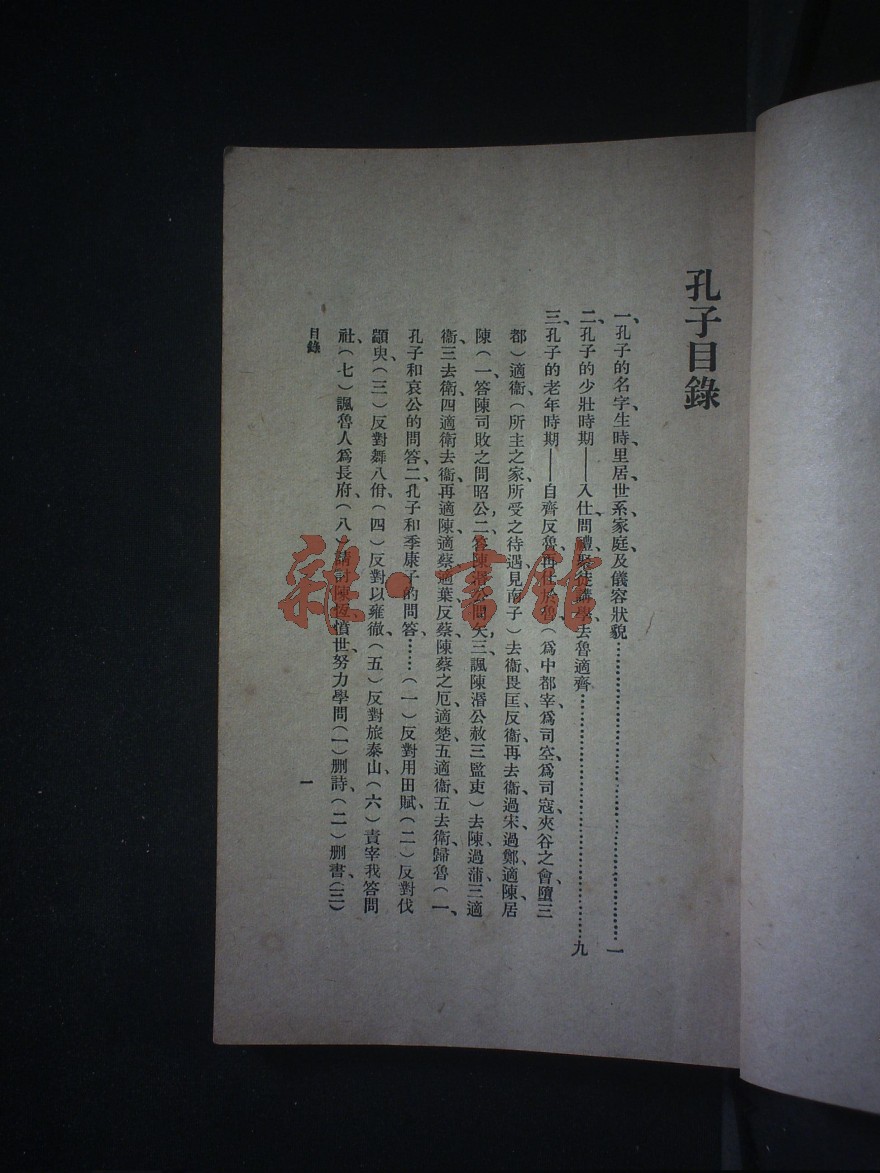 孔子目錄
一、孔子的名字、生時、里居、世系、家庭、及儀容狀貌……一
二、孔子的少壯時期——入仕、問禮、聚徒講學、去魯適齊……九
三、孔子的老年時期——自齊反魯、再仕於魯（爲中都宰、爲司空、爲司寇、夾谷之會、墮三
都）適衞（所主之家、所受之待遇、見南子）去衞、畏匡、反衞、再去衞、過宋、過鄭、適陳、居
陳（一、答陳司敗之問昭公，二、答陳湣公問矢，三、諷陳湣公赦三監吏）去陳、過蒲、三適
衞、三去衞、四適衞、去衞、再適陳、適蔡、適葉、反蔡、陳蔡之厄、適楚、五適衞、五去衞、歸魯（一、
孔子和哀公的問答、二、孔子和季康子的問答……（一）反對用田賦、（二）反對伐
顓臾、（三）反對舞八佾、（四）反對以雍徹、（五）反對旅泰山、（六）責宰我答問
社、（七）諷魯人爲長府、（八）請討陳恆、憤世、努力學問（一）删詩、（二）删書、（三）
目錄
一
雜·書館